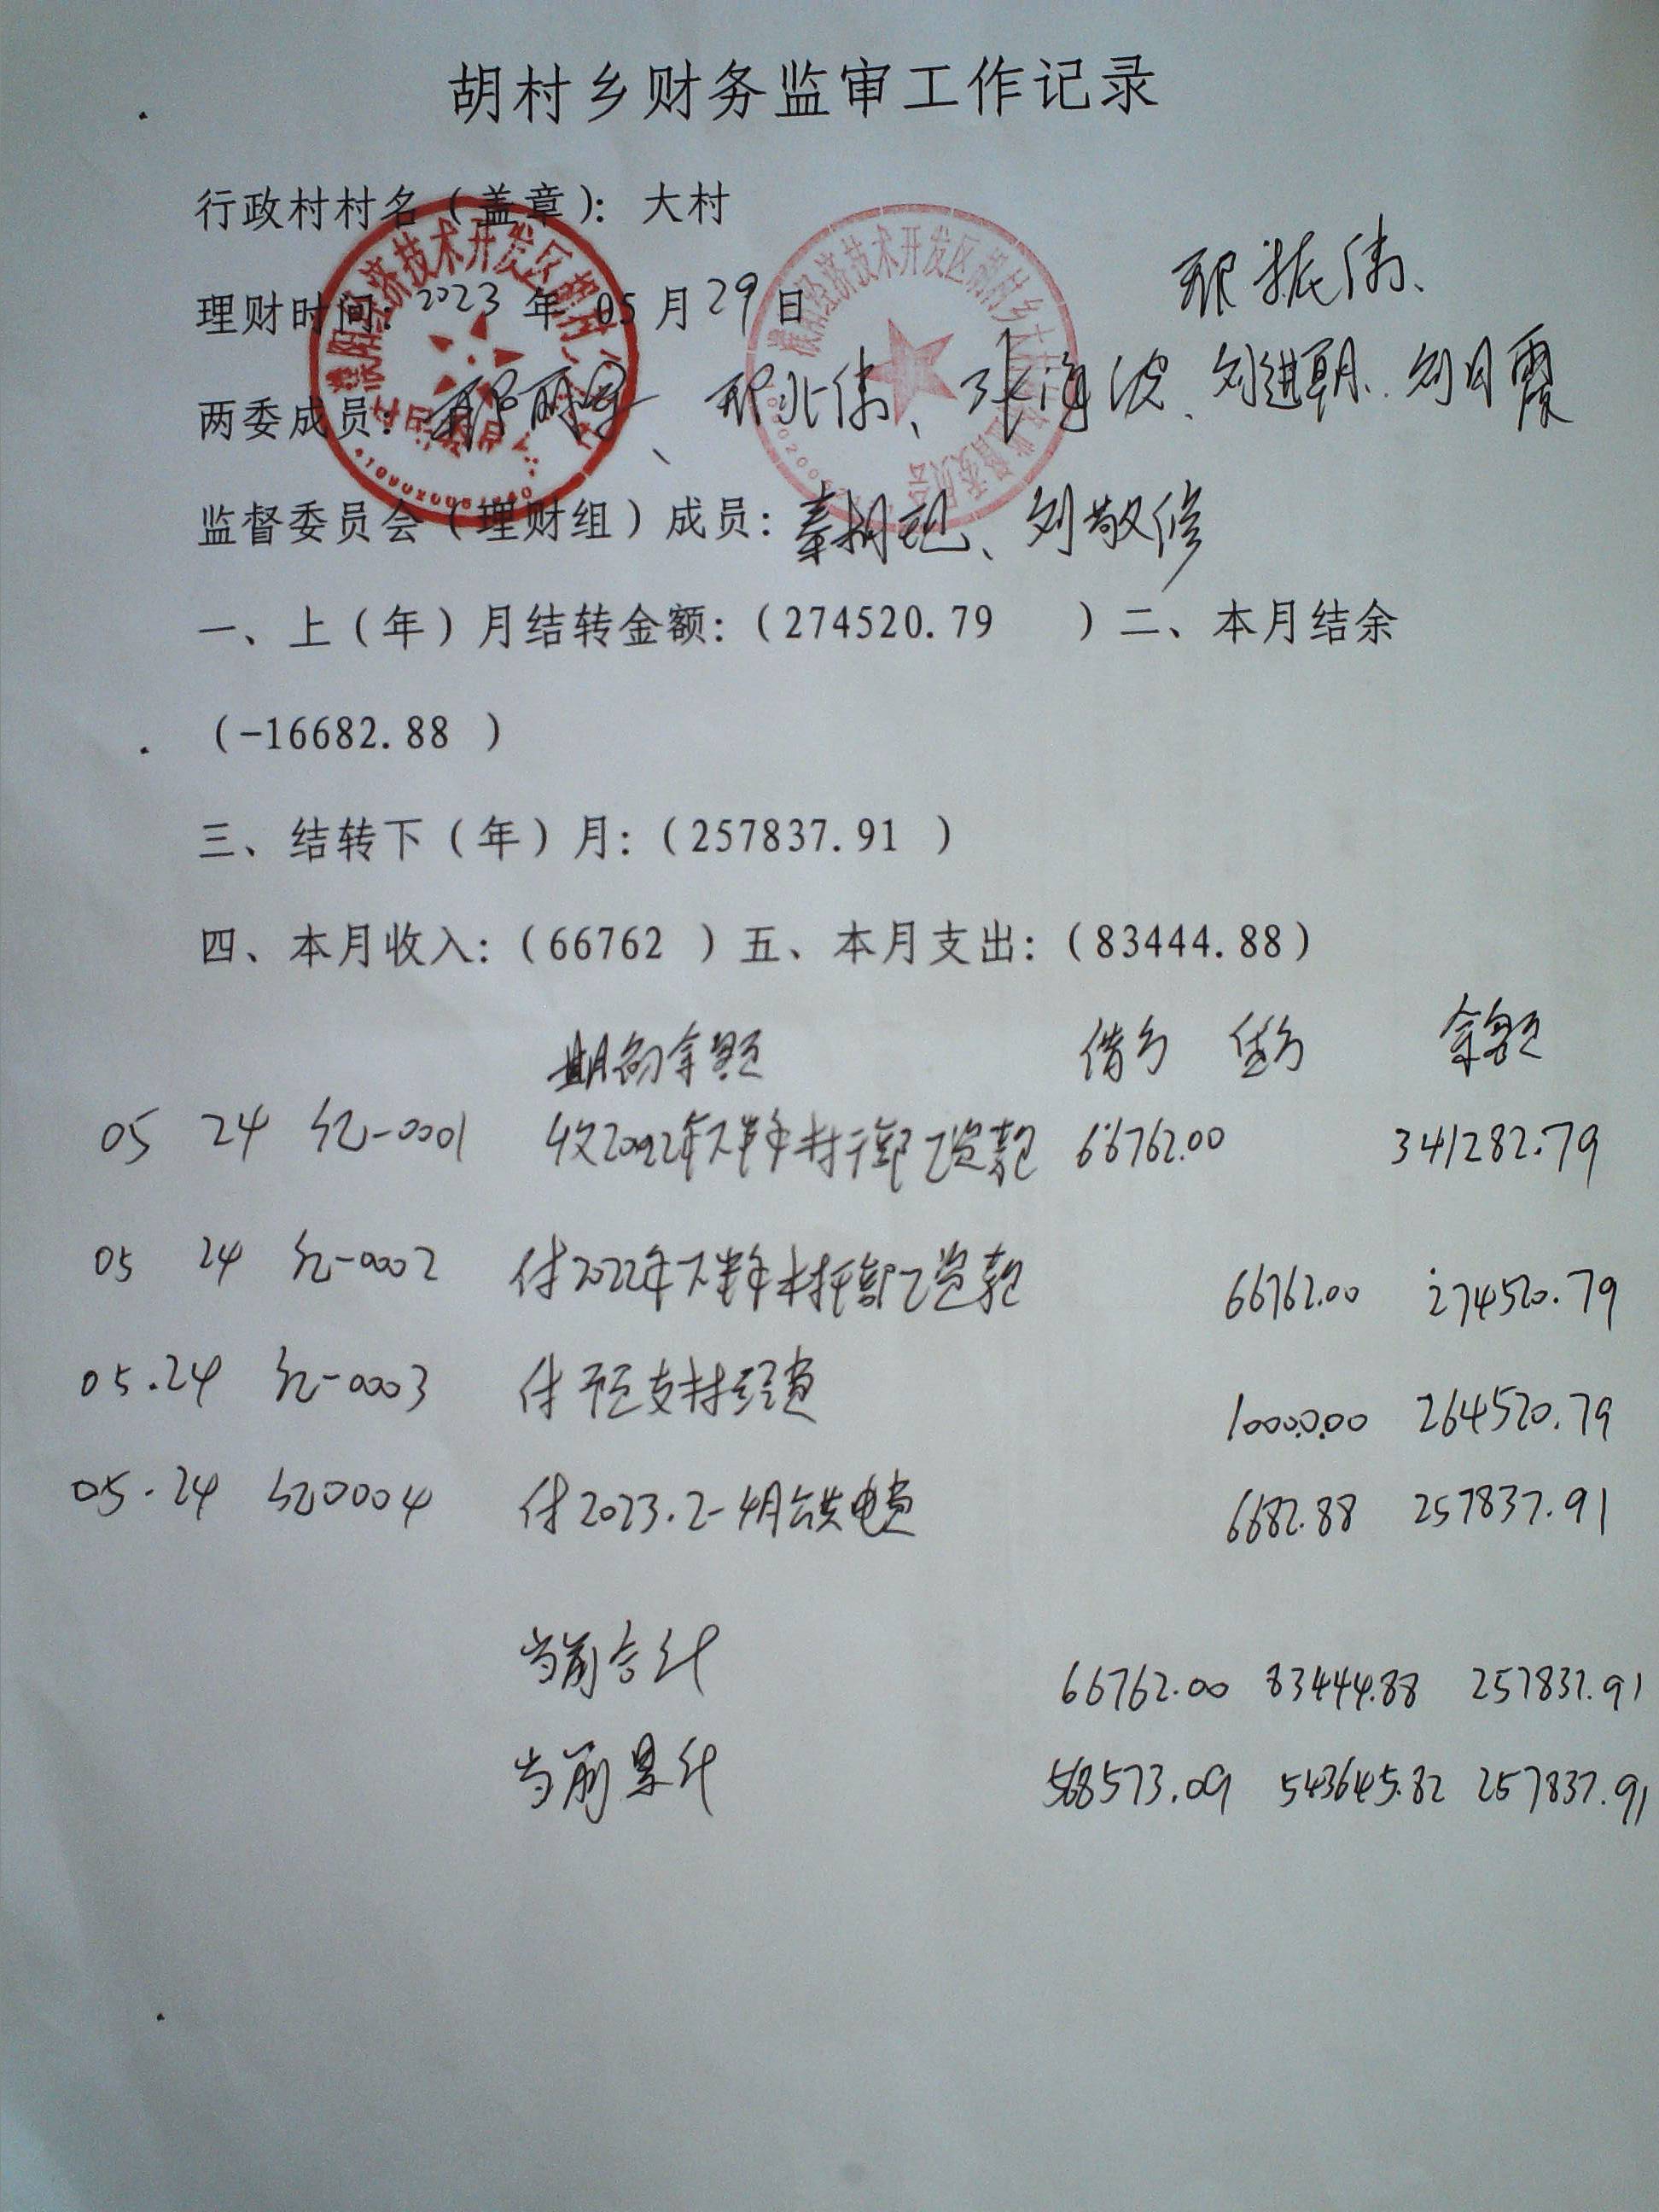 胡村乡财务监审工作记录
行政村村名（盖章）：大村
理财时间：2023年 05月29日
两委成员： 张海波、刘进朝、刘月霞
监督委员会（理财组）成员： 刘敬修
一、上（年）月结转金额：（274520.79 ）二、本月结余
（-16682.88 ）
三、结转下（年）月：（257837.91 ）
四、本月收入：（66762 ）五、本月支出：（83444.88）
期初余额 借方 贷方 余额
05 24 记-0001 收2022年下半年村干部工资款 66762.00 341282.79
05 24 记-0002 付2022年下半年村干部工资款 66762.00 274520.79
05.24 记-0003 付预支村经费 10000.00 264520.79
05.24 记0004 付2023.2-4月供电费 6682.88 257837.91
当前合计 66762.00 83444.88 257837.91
当前累计 568573.09 543645.82 257837.91